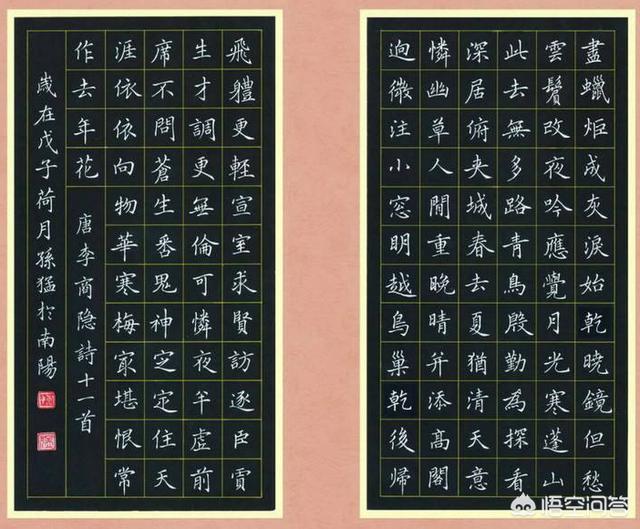 盡蠟炬成灰淚始乾曉鏡但愁
雲鬢改夜吟應覺月光寒蓬山
此去無多路青鳥殷勤為探看
深居俯夾城春去夏猶清天意
憐幽草人間重晚晴并添高閣
逈微注小窓明越鳥巢乾後歸
飛體更輕宣室求賢訪逐臣賈
生才調更無倫可憐夜半虛前
席不問蒼生番鬼神㝎定住天
涯依依向物華寒梅㝡堪恨常
作去年花
唐李商隐詩十一首
歲在戊子荷月孫猛於南陽
悟空问答